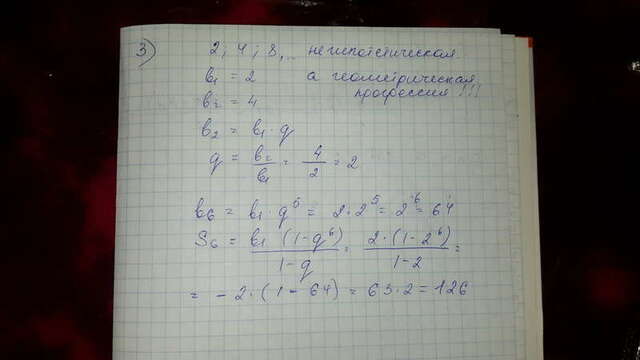 3) 2, 4, 8, ... не гипотетическая
b₁ = 2 а геометрическая
прогрессия !!!
b₂ = 4
b₂ = b₁ · q
q = b₂/b₁ = 4/2 = 2
b₆ = b₁ · q⁵ = 2 · 2⁵ = 2⁶ = 64
S₆ = b₁ · (1 - q⁶)/1 - q = 2 · (1 - 2⁶)/1 - 2 =
= - 2 · (1 - 64) = 63 · 2 = 126